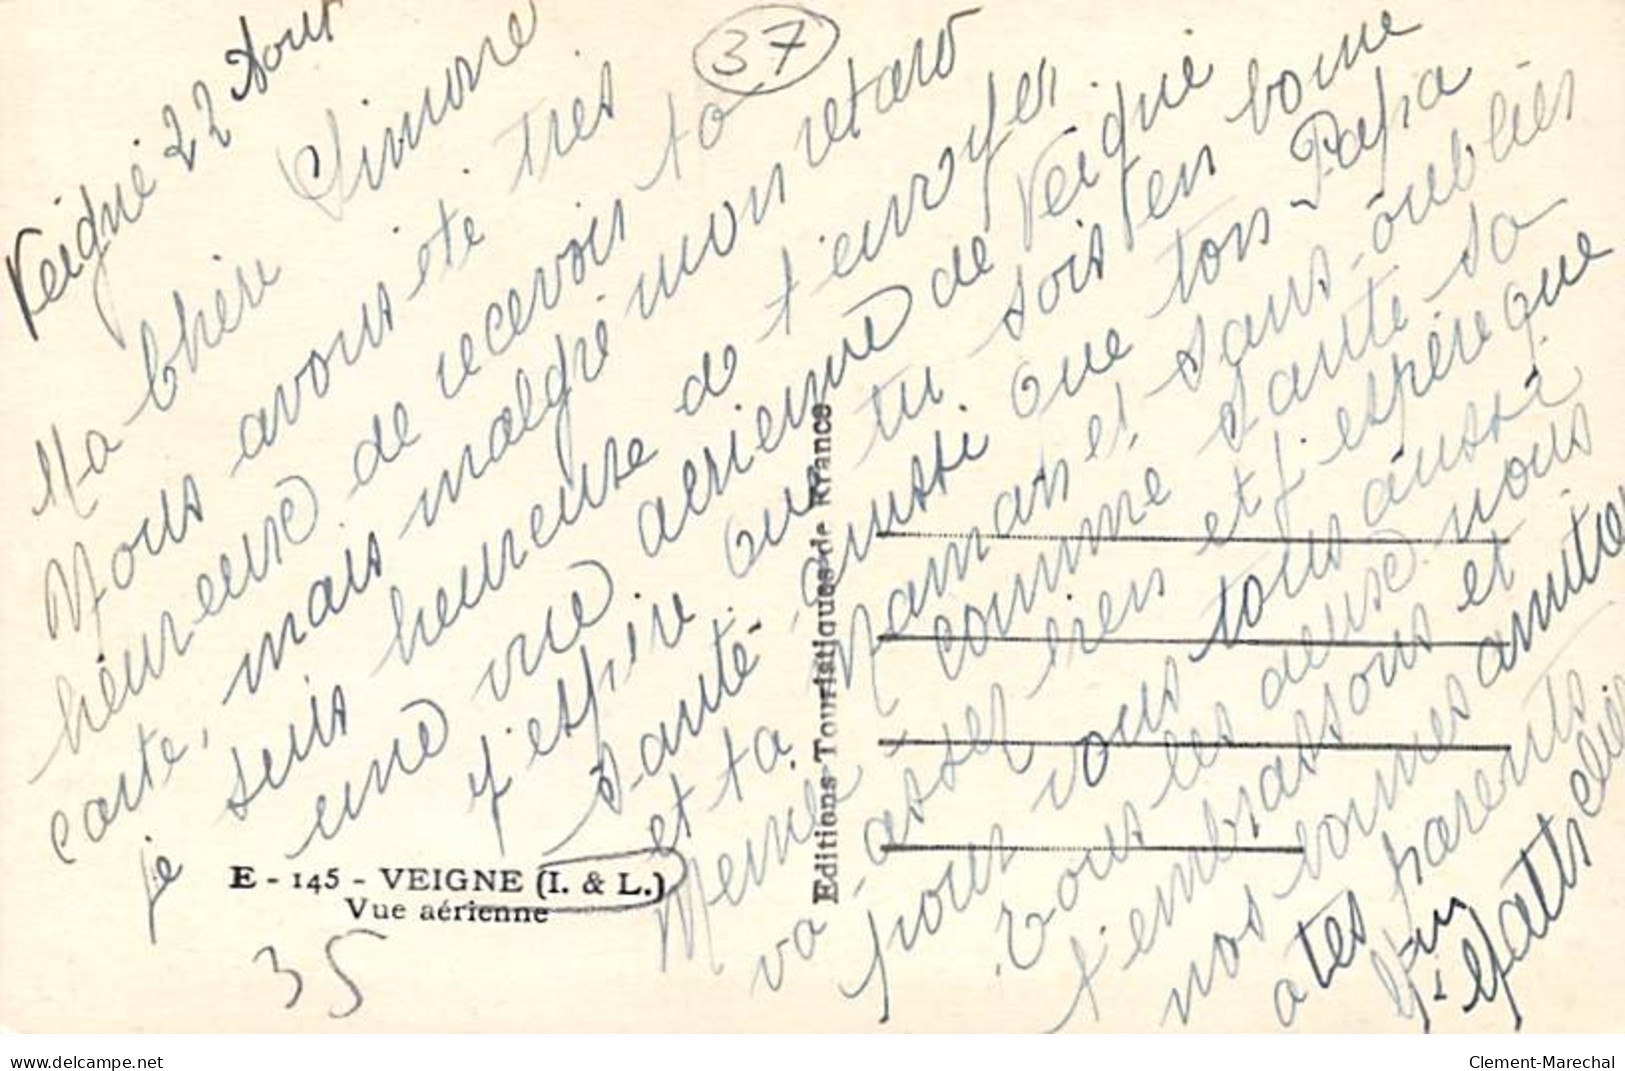 Veigné 22 Aout
37
Ma Chère Simone
Nous avons été très
heureuse de recevoir ta
carte, mais malgré mon retard
je suis heureuse de t'envoyer
une vue aérienne de Veigné
J'espère que tu sois en bonne
santé - aussi que ton Papa
et ta Maman et sans oublier
Memé comme santé sa
va assez bien et j'espère que
pour vous tous aussi
Tous les deuse nous
t'embrassons et
nos bonnes amitiés
a tes parents
E - 145 - VEIGNE (I. & L.)
Vue aérienne
35
Editions Touristiques de France
www.delcampe.net
Clement-Marechal